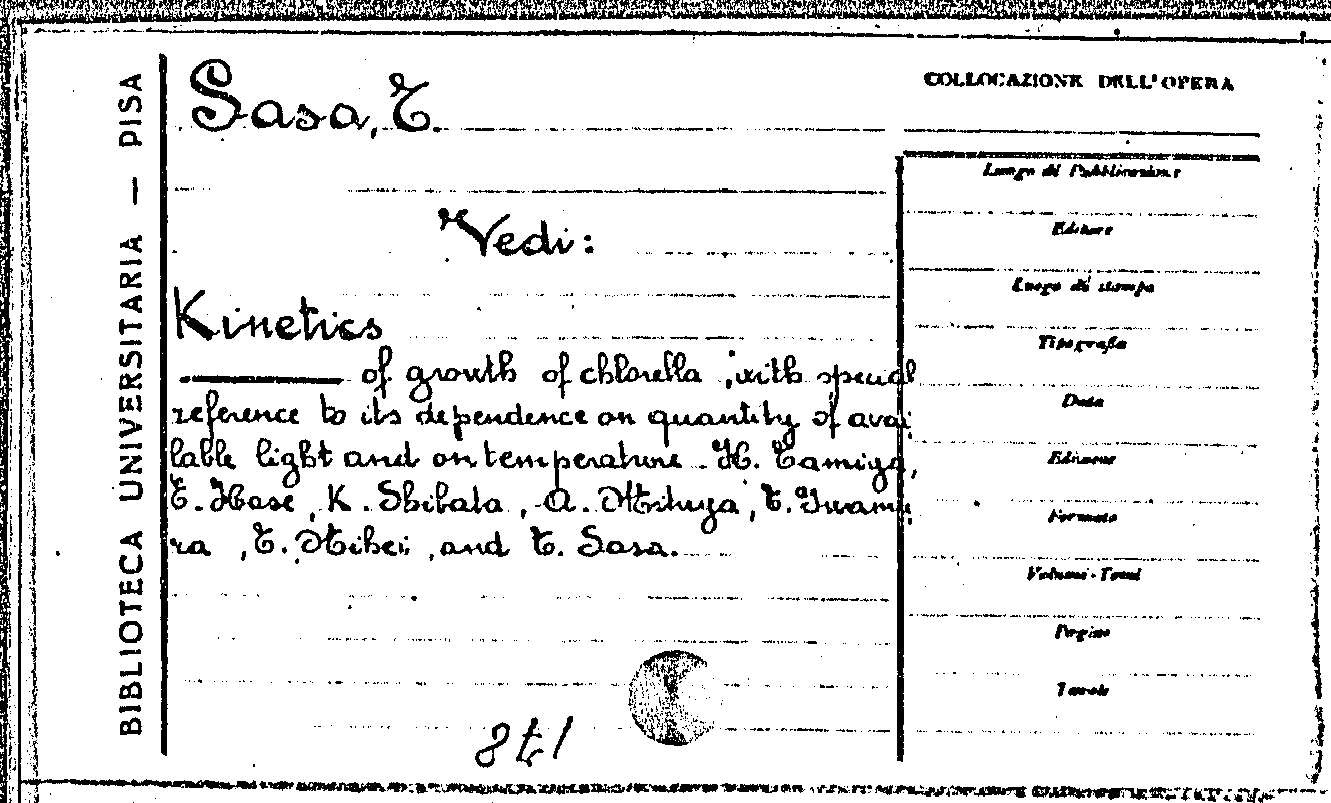 BIBLIOTECA UNIVERSITARIA — PISA
Sasa, T.
Vedi:
Kinetics
of growth of chlorella, with special
reference to its dependence on quantity of avai
lable light and on temperature. H. Tamiya,
E. Hase, K. Shibata, A. Mituya, T. Iwamu
ra, T. Nihei, and T. Sasa.
COLLOCAZIONE DELL'OPERA
Luogo di Pubblicazione
Editore
Luogo di stampa
Tipografia
Data
Edizione
Formato
Volumi - Tomi
Pagine
Tavole